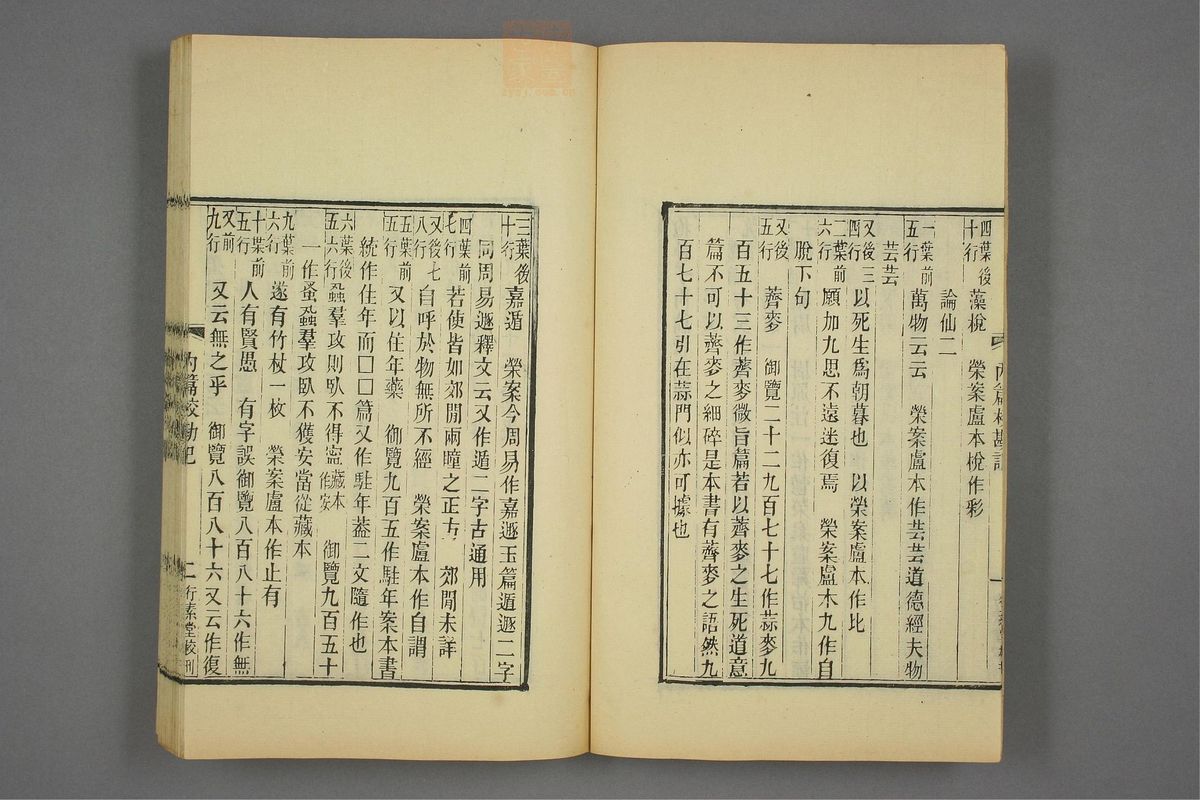 四葉後十行 藻梲 榮案盧本梲作彩
論仙二
一葉前五行 萬物云云 榮案盧本作芸芸道德經夫物
芸芸
又後三四行 以死生爲朝暮也 以榮案盧本作比
二葉前六行 願加九思不遠迷復焉 榮案盧本九作自
脫下句
又後五行 薺麥 御覽二十二九百七十七作蒜麥九
百五十三作薺麥微旨篇若以薺麥之生死道意
篇不可以薺麥之細碎是本書有薺麥之語然九
百七十七引在蒜門似亦可據也
三葉後十行 嘉遁 榮案今周易作嘉遯玉篇遁遯二字
同周易遯釋文云又作遁二字古通用
四葉前七行 若使皆如郊閒兩瞳之正方 郊閒未詳
又後七八行 自呼於物無所不經 榮案盧本作自謂
五葉前五行 又以住年藥 御覽九百五作駐年案本書
統作住年而□□篇又作駐年葢二文隨作也
六葉後五六行 蝨羣攻則臥不得寍藏本作安 御覽九百五十
一作蚤蝨羣攻臥不獲安當從藏本
九葉前六行 遂有竹杖一枚 榮案盧本作止有
十葉前五行 人有賢愚 有字誤御覽八百八十六作無
又前九行 又云無之乎 御覽八百八十六又云作復
內篇校勘記 二 行素堂校刊